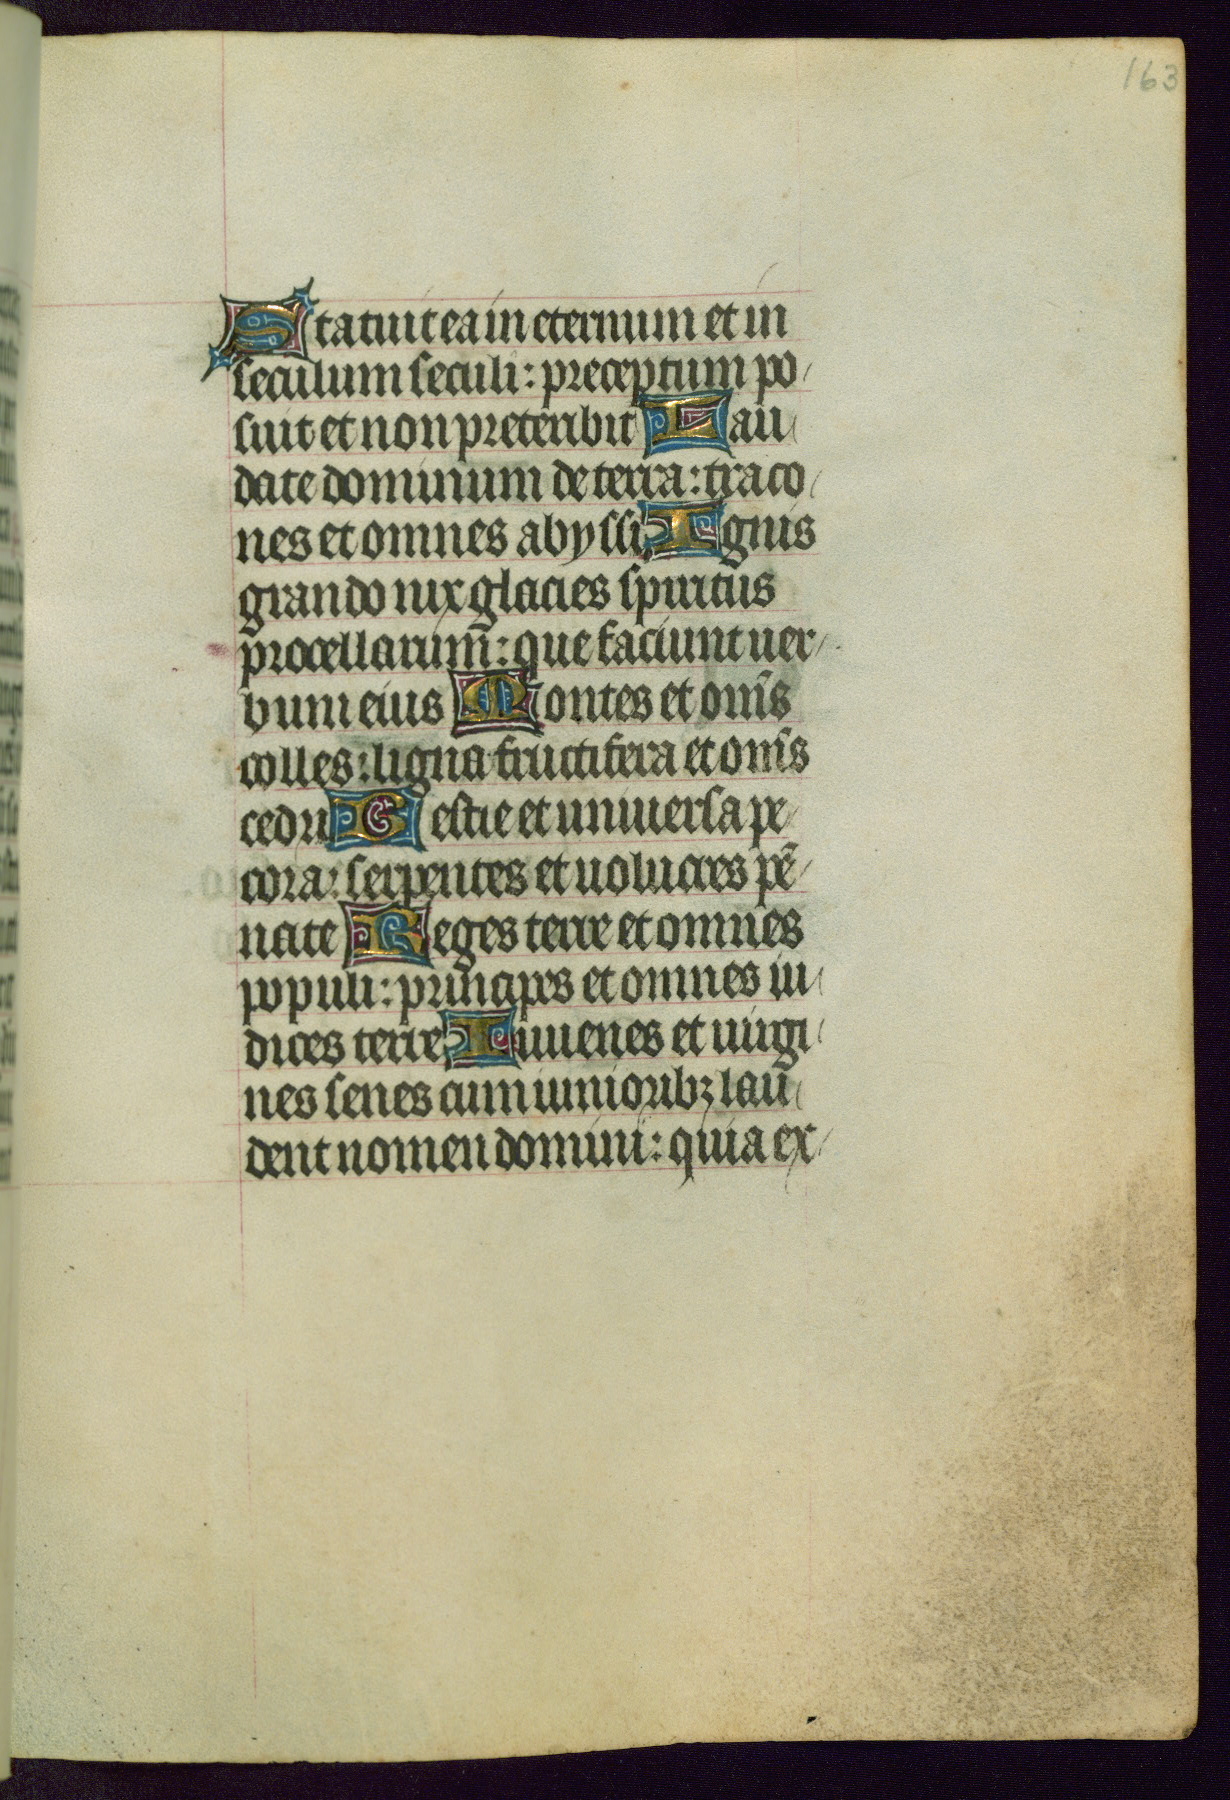 163
Statuit ea in eternum et in
seculum seculi: preceptum po
suit et non preteribit Lau
date dominum de terra: traco
nes et omnes abyssi Ignis
grando nix glacies spiritus
procellarum̄: que faciunt uer
bum eius Montes et om̄s
colles: ligna fructifera et om̄s
cedri Bestie et uniuersa pe
cora: serpentes et uolucres pē
nate Reges terre et omnes
populi: principes et omnes iu
dices terre Iuuenes et uirgi
nes senes cum iunioribꝫ lau
dent nomen domini: quia ex